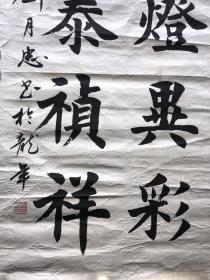 燈異彩
泰禎祥
月忠書於龍年